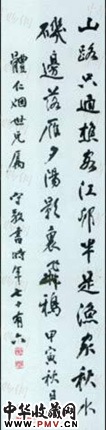 山路只通樵客江邨半是漁家秋水
礙邊落雁夕陽影裏飛鴉 甲寅秋日
體仁烟世兄屬 守敦書時年七十有六
中华收藏网
WWW.PMV.CN